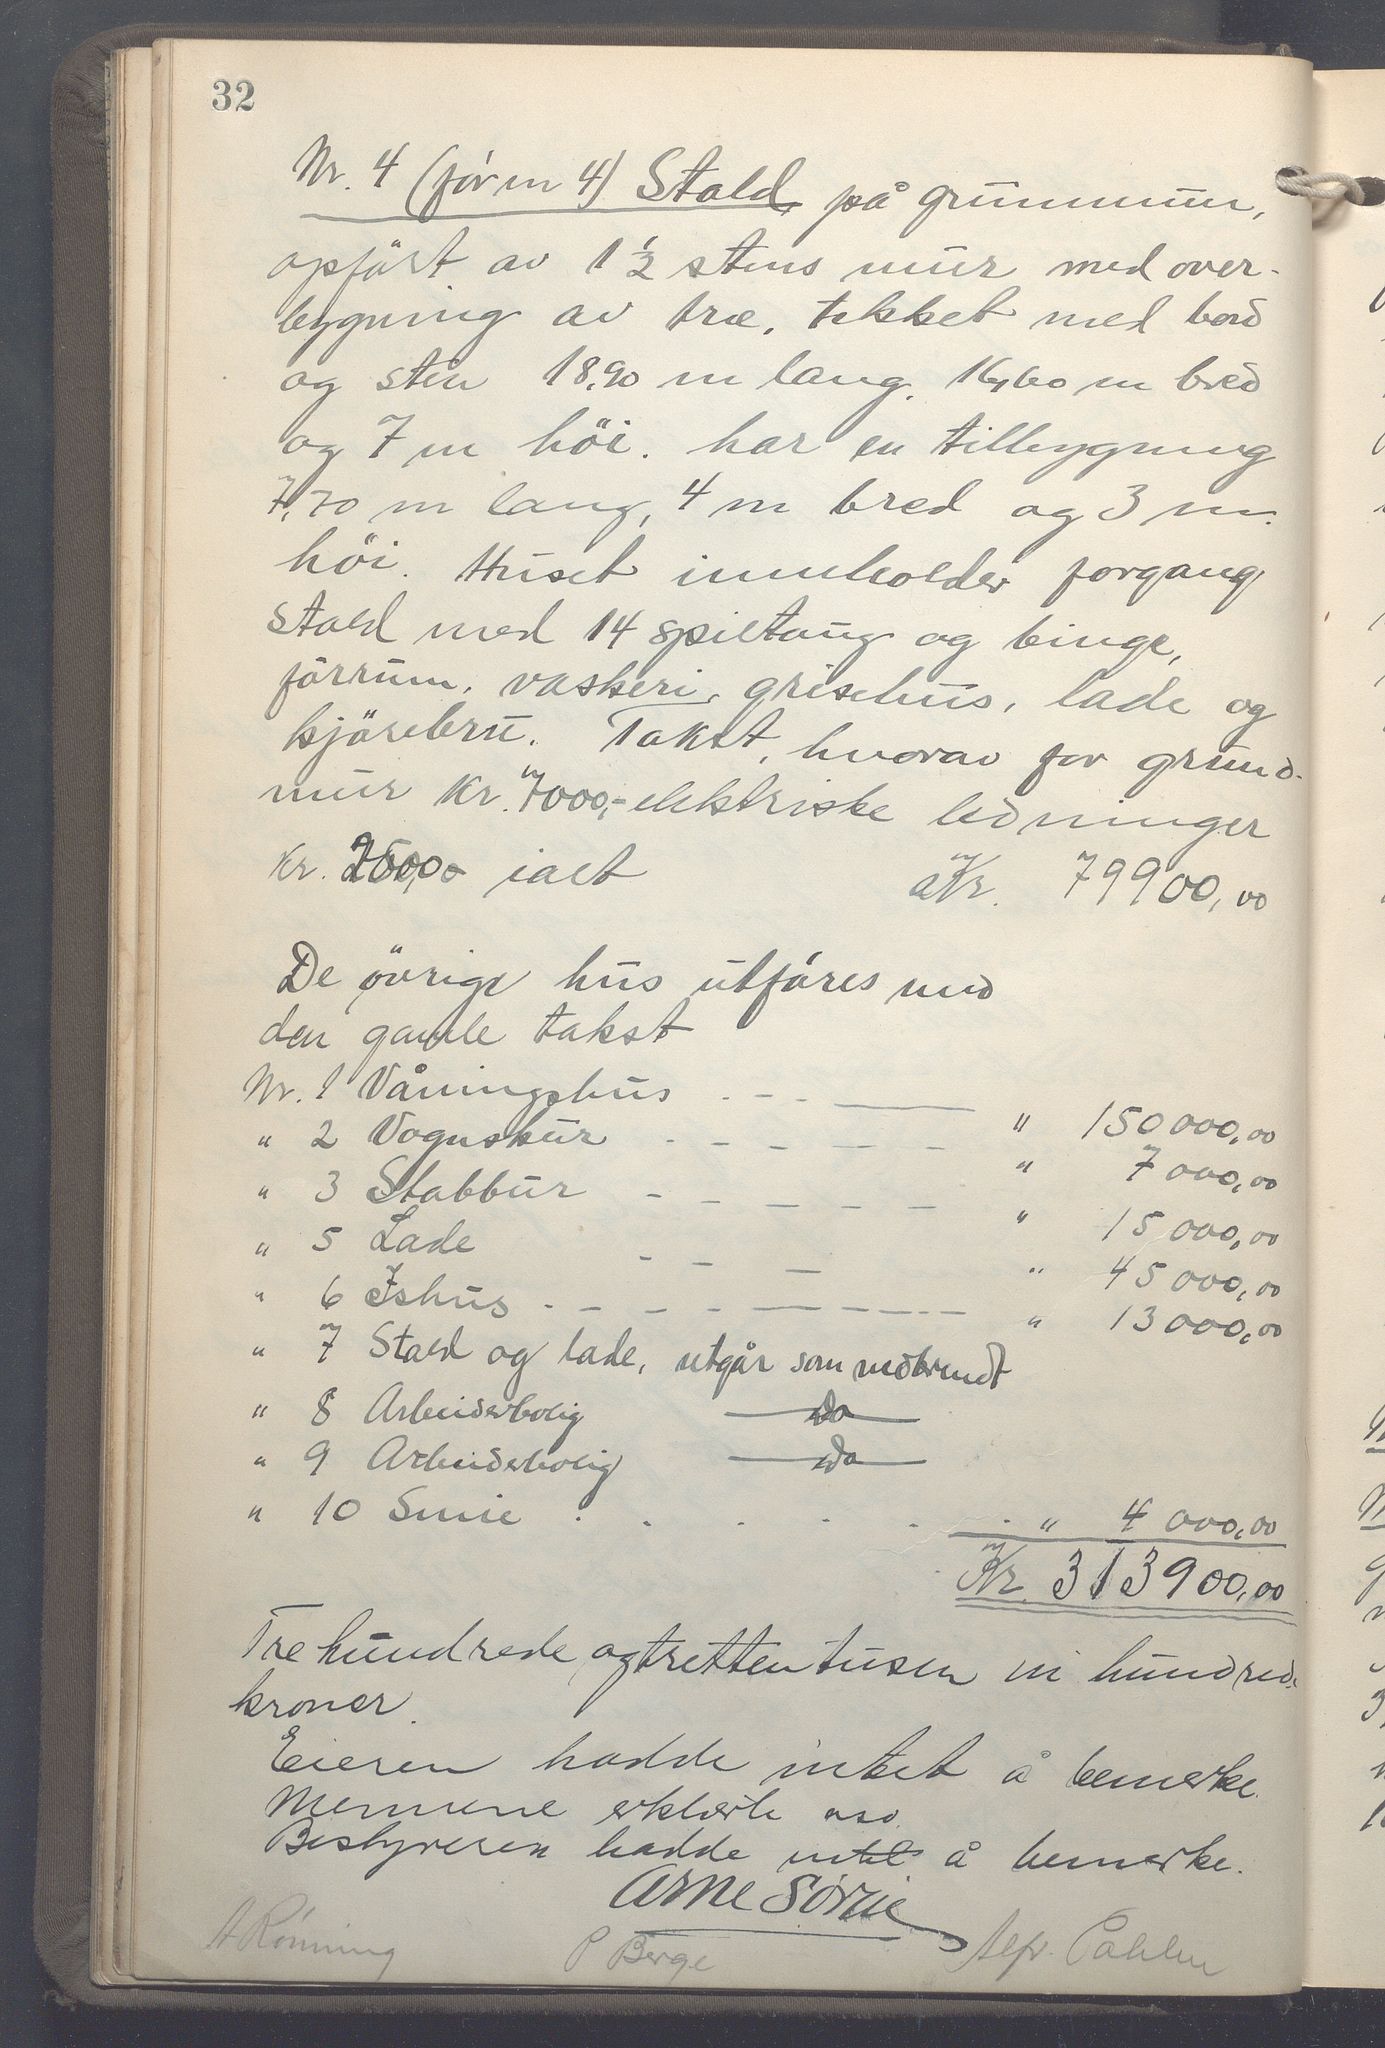 32
Nr. 4 (før nr 4) Stald, på grunnmur,
opført av 1 1/2 stens mur med over-
bygning av træ, tekket med bord
og sten 18,90 m lang, 16,60 m bred
og 7 m höi. har en tilbygning
7,70 m lang, 4 m bred og 3 m
höi. Huset inneholder forgang
stald med 14 spiltaug og binge,
fôrrum, vaskeri, grisehus, lade og
kjörebru. Takst, hvorav for grund-
mur Kr. 7000,- elektriske ledninger
Kr. ialt Kr. 79900,00
De övrige hus utføres med
den gamle takst
Nr. 1 Våningshus - - - " 150000,00
" 2 Vognskur - - - - - " 7000,00
" 3 Stabbur - - - - - - " 15000,00
" 5 Lade - - - " 45000,00
" 6 Ishus - - - - - - - " 13000,00
" 7 Stald og lade, utgår som nedbrendt
" 8 Arbeiderbolig — Do —
" 9 Arbeiderbolig — Do —
" 10 Smie . . . . . . " 4000,00
Kr. 313900,00
Tre hundrede og tretten tusen ni hundrede
kroner.
Eieren hadde intet å bemerke.
Mennene erklærte osv.
Bestyreren hadde intet å bemerke.
Arne
A Rønning P Berge Alfr.